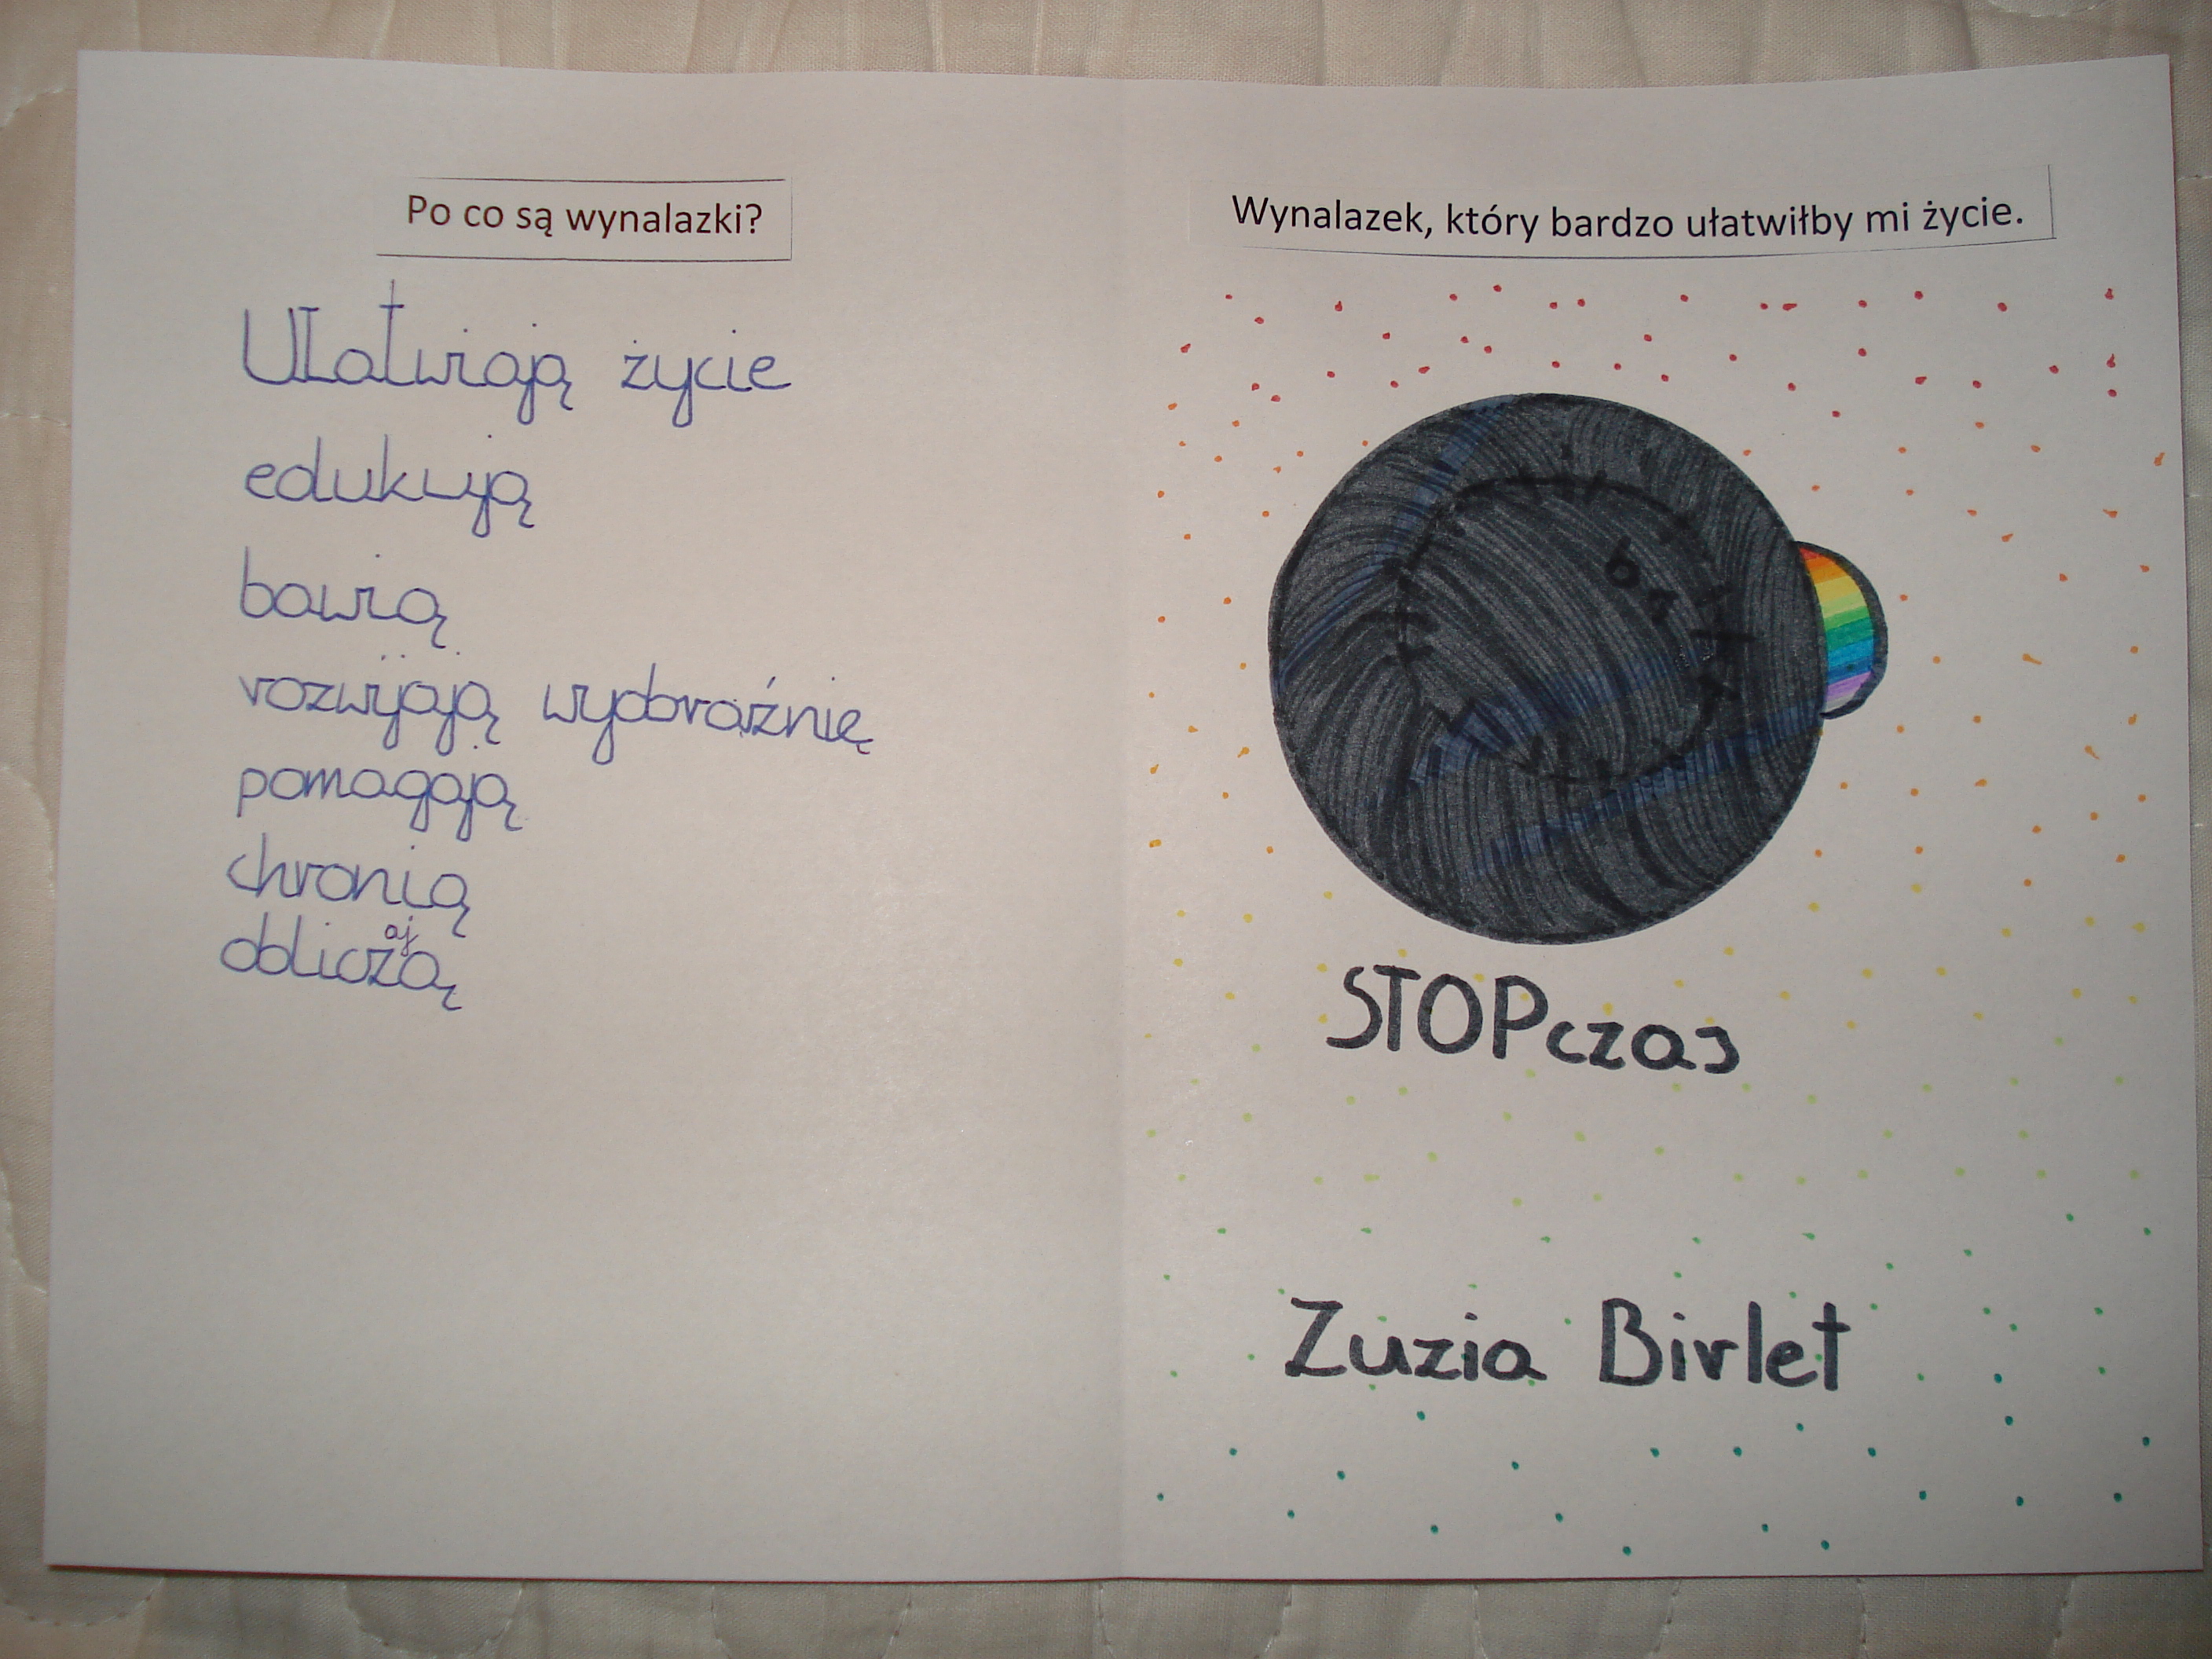 Po co są wynalazki?
Ułatwiają życie
edukują
bawią
rozwijają wyobraźnię
pomagają
chronią
obliczają
Wynalazek, który bardzo ułatwiłby mi życie.
STOPczas
Zuzia Birlet